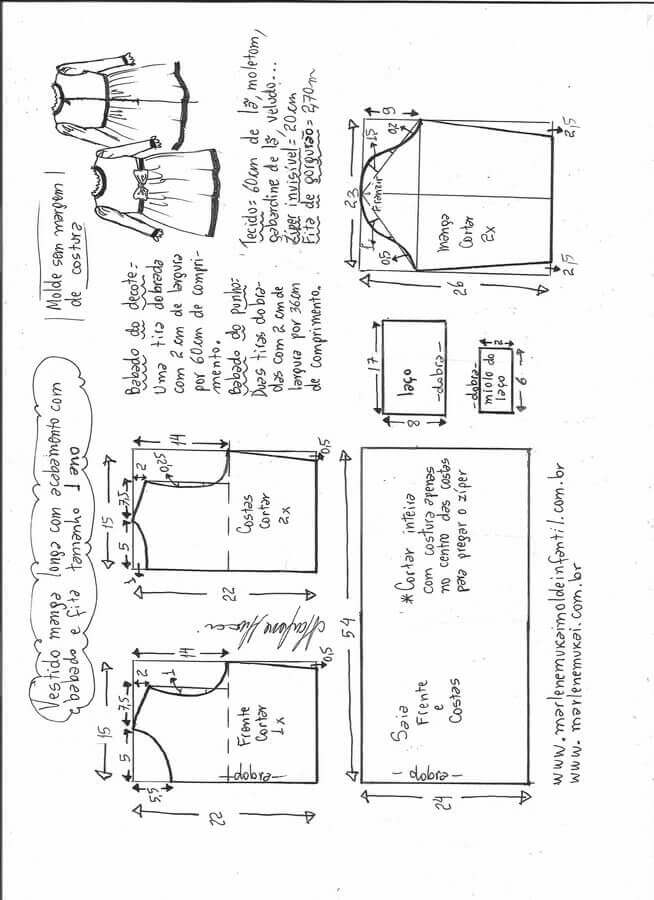 Vestido manga longa com acabamento com
babado e fita tamanho 1 ano
Molde sem margem
de costura
Babado do decote:
Uma tira dobrada
com 2 cm de largura
por 60cm de compri-
mento.
Babado do punho:
Duas tiras dobra-
das com 2 cm de
largura por 36cm
de comprimento.
Tecido= 60cm de lã, moletom,
gabardine de lã, veludo...
Ziper invisível= 20cm
Fita de gorgurão = 2,70m
15
5
7,5
2
14
5,5
1
Frente
Cortar
1x
dobra
22
0,5
15
5
7,5
2
14
0,25
1
Costas
Cortar
2x
22
0,5
23
9
20
15
Franzir
1
0,5
manga
Cortar
2x
26
2,5
2,5
17
laço
dobra
8
dobra
miolo do
laço
2
6
54
Saia
Frente
e
Costas
*Cortar inteira
com costura apenas
no centro das costas
para pregar o zíper
dobra
24
www.marlenemukaimoldeinfantil.com.br
www.marlenemukai.com.br